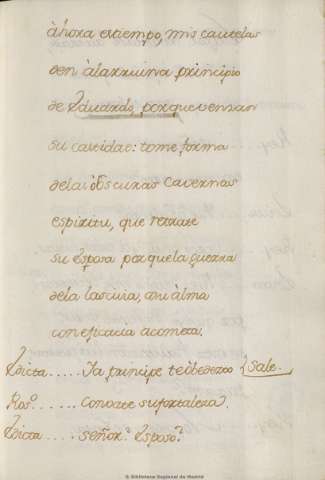 àhora es tiempo, mis cautelas
den à la rruina principio
de Eduardo, porque vensan
su caridad: tome forma
de las obscuras cavernas
espiritu, que retrate
su esposa porque la guerra
de la lascivia, an i àlma
con eficacia acometa.
Edicta ..... Ya principe te obedezco {Sale.
Ros.º ..... Conozce su fortaleza.
Edicta ..... señor? Esposo?
© Biblioteca Regional de Madrid